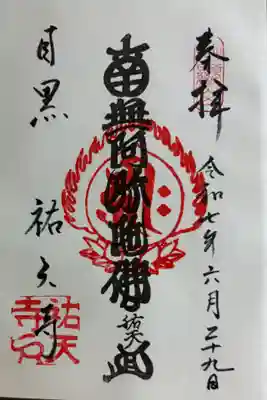 奉拝
令和七年六月二十九日
南無阿弥陀佛
祐天
目黒
祐天寺
祐天
寺印